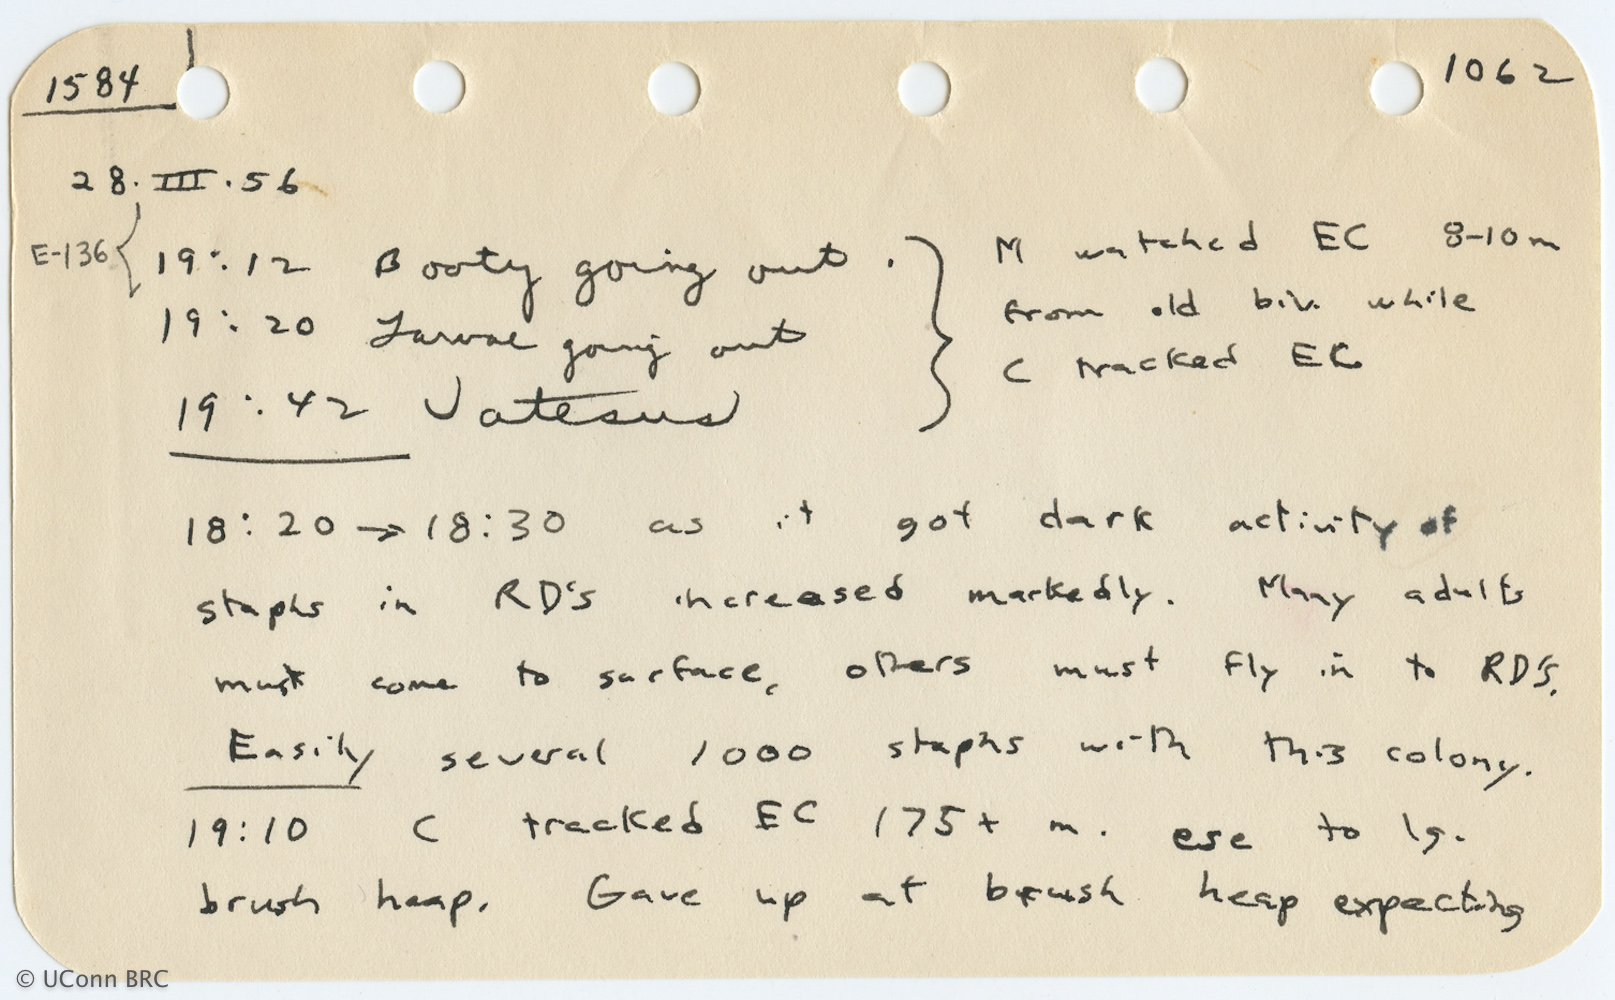 1584
1062
28.III.56
E-136
19:12 Booty going out.
19:20 Larvae going out
19:42 Vatesus
M watched EC 8-10m
from old biv. while
C tracked EC
18:20 → 18:30 as it got dark activity of
staphs in RD's increased markedly. Many adults
must come to surface, others must fly in to RD's.
Easily several 1000 staphs with this colony.
19:10 C tracked EC 175+ m. ese to lg.
brush heap. Gave up at brush heap expecting
© UConn BRC